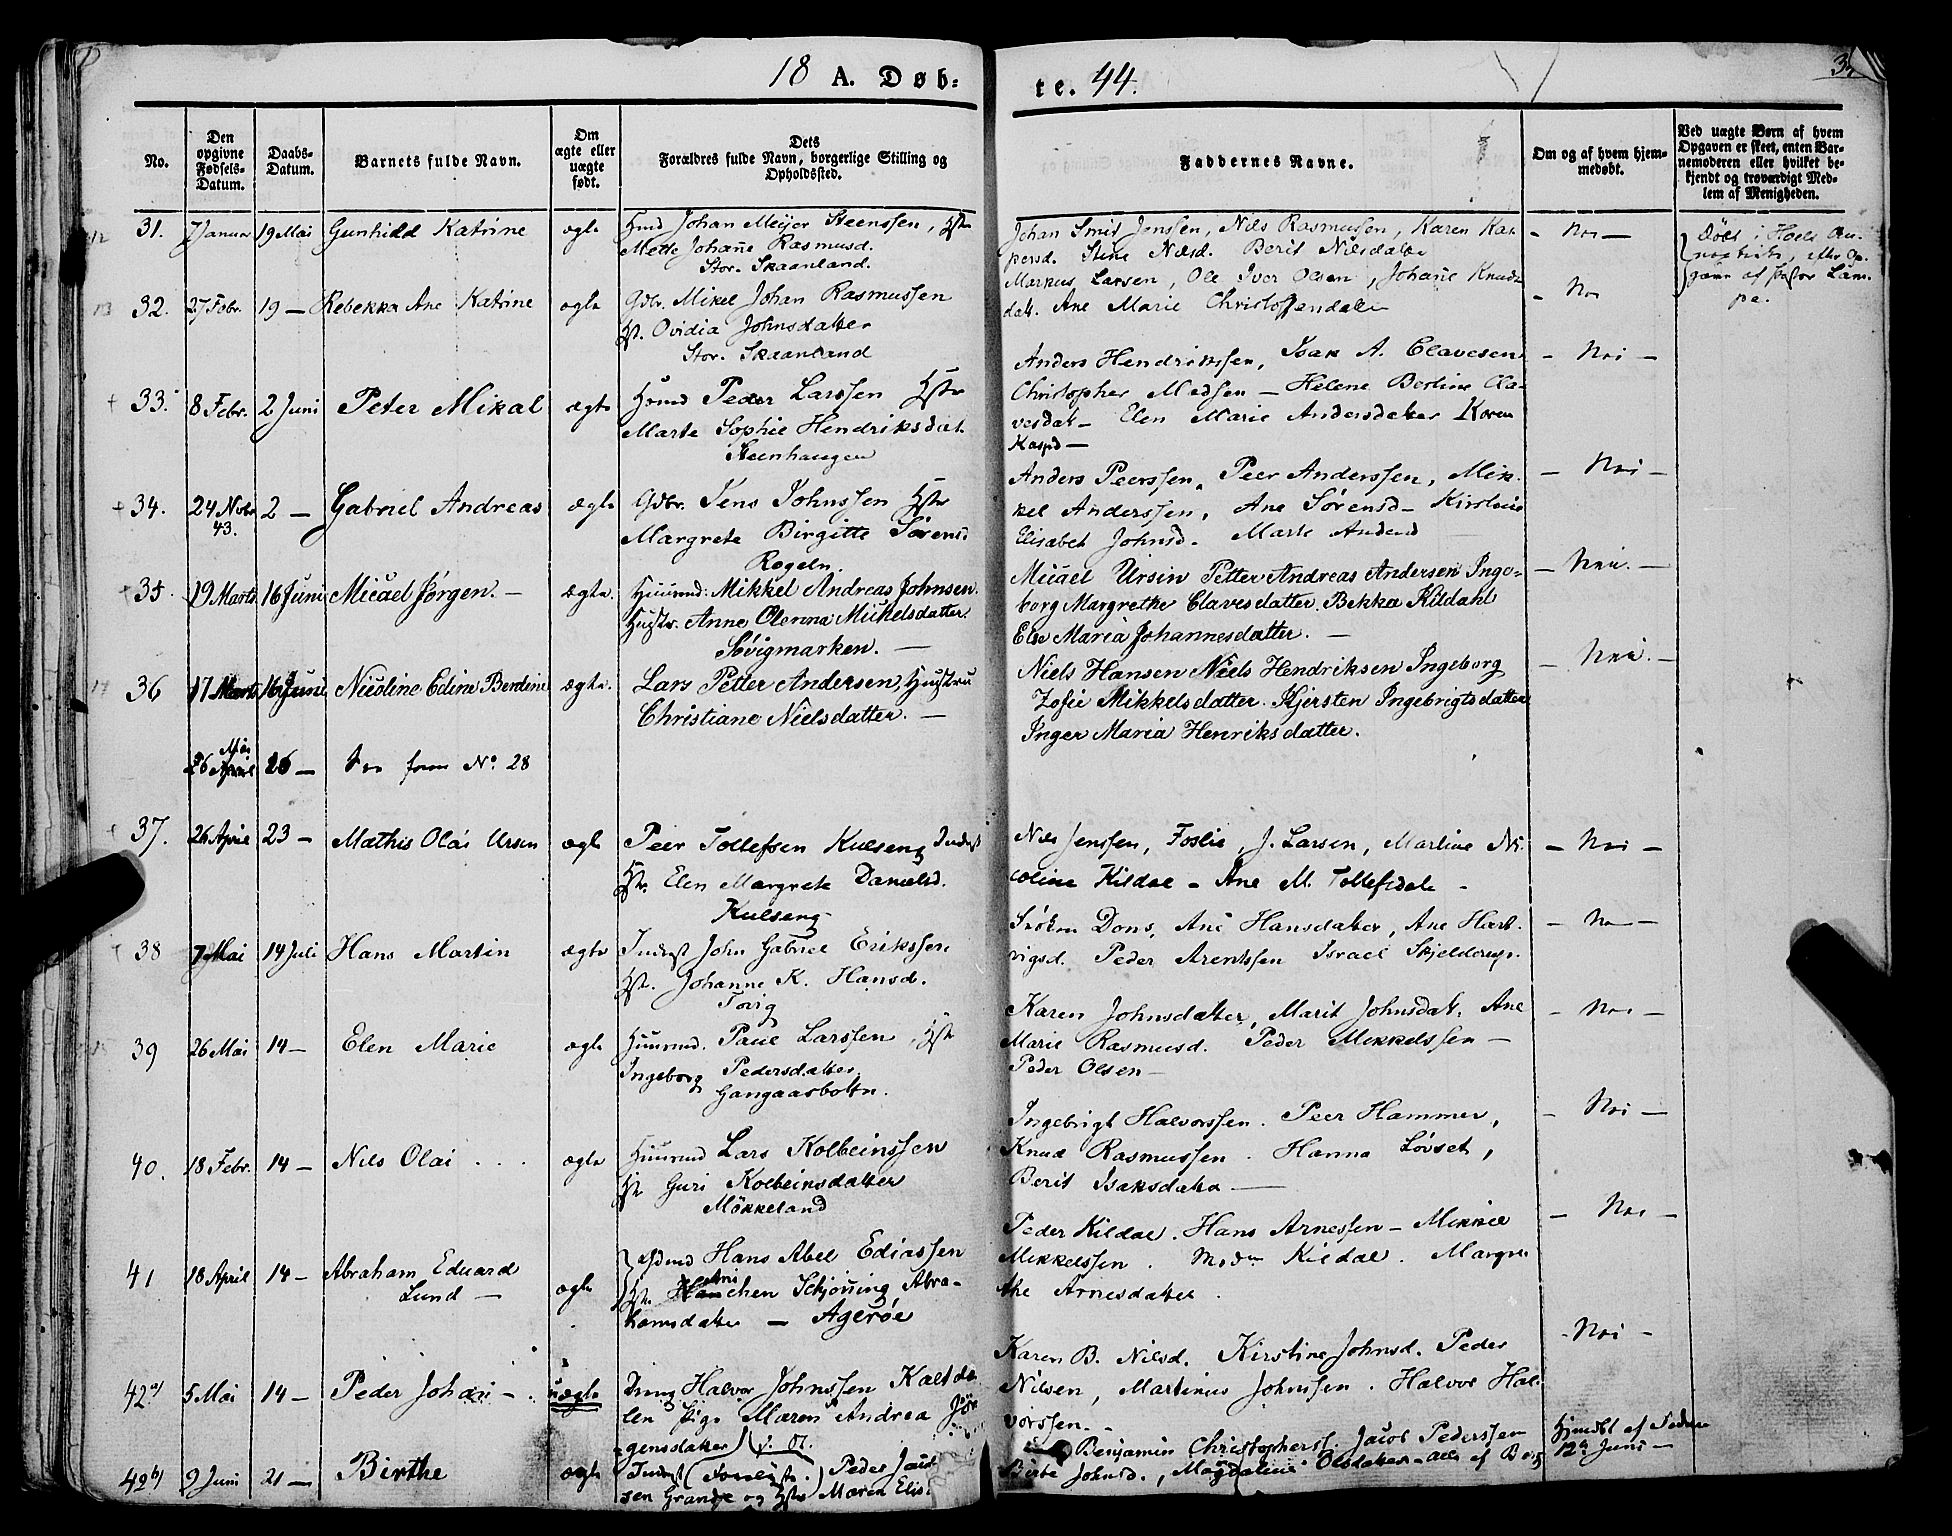 18 A. Døb=
te. 44.
No.
Den opgivne Fødsels-Datum.
Daabs-Datum.
Barnets fulde Navn.
Om ægte eller uægte født.
Dets Forældres fulde Navn, borgerlige Stilling og Opholdssted.
Faddernes Navne.
Om og af hvem hjem-medøbt.
Ved uægte Børn af hvem Opgaven er skeet, enten Bar-nemoderen eller hvilket be-kjendt og troværdigt Med-lem af Menigheden.
31. 7 Januar 19 Mai Gunhild Katrine ægte
Johan Meijer Steenssen, Hstr
Mette Johane Rasmusd.
Stor. Skaanland.
Johan Smis Jenssen, Nils Rasmussen, Karen Kas-
persd. Stine Nilsd. Berit Nilsdatter
32. 27 Febr. 19 — Rebekka Ane Katrine ægte
Gdbr. Mikel Johan Rasmussen
Hst. Ovidia Johnsdatter
Stor. Skaanland
Markus Larsen, Ole Iver Olsen, Johane Knuds-
dat. Ane Marie Christoffersdatter
33. 8 Febr. 2 Juni Peter Mikal ægte
Huusmd Peder Larssen Hstr
Marte Sophie Hendriksdat.
Steenhaugen
Anders Hendrikssen, Isak A. Clavesen
Christopher Madsen — Helene Berline Cla-
vesdat — Elen Marie Andersdatter Karen
Kaspd —
— Nei —
34. 24 Novbr 43. 2 — Gabriel Andreas ægte
Gdbr. Jens Johnssen Hstr
Margrete Birgitte Sørensd
Rogeln.
Anders Peerssen, Peer Anderssen, Mik-
kel Anderssen, Ane Sørensd — Kirstine
Elisabet Johnsd. Marte Andersd
— Nei —
35. 19 Marts 16 Juni Micael Jørgen. — ægte.
Huusmd. Mikkel Andreas Johnsen.
Hustr. Anne Olenna Mikkelsdatter.
Søvigmarken. —
Micael Ursin Petter Andreas Andersen Inge-
borg Margrethe Clavesdatter. Bekka Kildahl
Else Maria Johannesdatter. —
— Nei. —
36 17 Marts 16 Juni Nicoline Edine Berdine ægte.
Lars Petter Andersen, Hustru
Christiane Nielsdatter. —
Niels Hansen Niels Hendriksen Ingeborg
Zofie Mikkelsdatter. Kjersten Ingebrigtsdatter
Inger Maria Henriksdatter.
— Nei. —
26 April Mai 26 — See foran No. 28
37. 26 April 23 — Mathis Olai Ursin ægte
Peer Tollefsen Kulseng Inderst
Hst. Elen Margrete Danielsd.
Kulseng
Nils Jenssen, Foslie, J. Larsen, Martine Ni-
coline Kildal — Ane M. Tollefsdat. —
— Nei —
38 7 Mai 14 Juli Hans Martin ægte
Inderst John Gabriel Erikssen
Hst. Johanne K. Hansd.
Tovig
Frøken Dons, Ane Hansdatter, Ane Hart-
vigsd. Peder Arentssen Israel Skjelderup.
39 26 Mai 14 — Elen Marie ægte
Huusmd. Paul Larssen, Hstr
Ingeborg Pedersdatter
Gangaasbotten.
Karen Johnsdatter, Marit Johnsdat. Ane
Marie Rasmusd. Peder Mikkelssen —
Peder Olsen —
— Nei —
40. 18 Febr. 14 — Nils Olai . . . ægte
Huusmd Lars Kolbeinssen
Hst. Guri Kolbeinsdatter
Møkkeland
Ingebrigt Halvorssen. Peer Hammer,
Knud Rasmussen. Hanna Løvset,
Berit Isaksdatter —
— Nei —
41 18 April 14 — Abraham Eduard
Lund — ægte
Hans Abel Ediassen
Hst. chen Schjøning Abra-
hamsdatter — Agerøe
Peder Kildal. Hans Arnessen — Mikkel
Mikkelssen. Kildal. Margre-
the Arnesdatter.
— Nei —
42 a) 5 Mai 14 — Peder Johan — uægte
Dreng Halvor Johnssen Kaltda-
len Pige Maren Andrea Jør-
gensdatter
Karen B. Nilsd. Kirstine Johnsd. Peder
Nilsen, Martinus Johnssen. Halvor Hal-
vorssen. —
— Nei —
42 b) 9 Juni 21 — Birthe ægte
Inderst Peder Jacob-
sen Grande og Hstr Maren Elis
Benjamin Christophers. Jacob Pederssen
Birte Johnsd., Magdalene Olsdatter — alle af Borg
Hjemdbt af Faderen
12te Juni —
Døbt i Hols
efter Op-
gave af Pastor Lam-
pe.